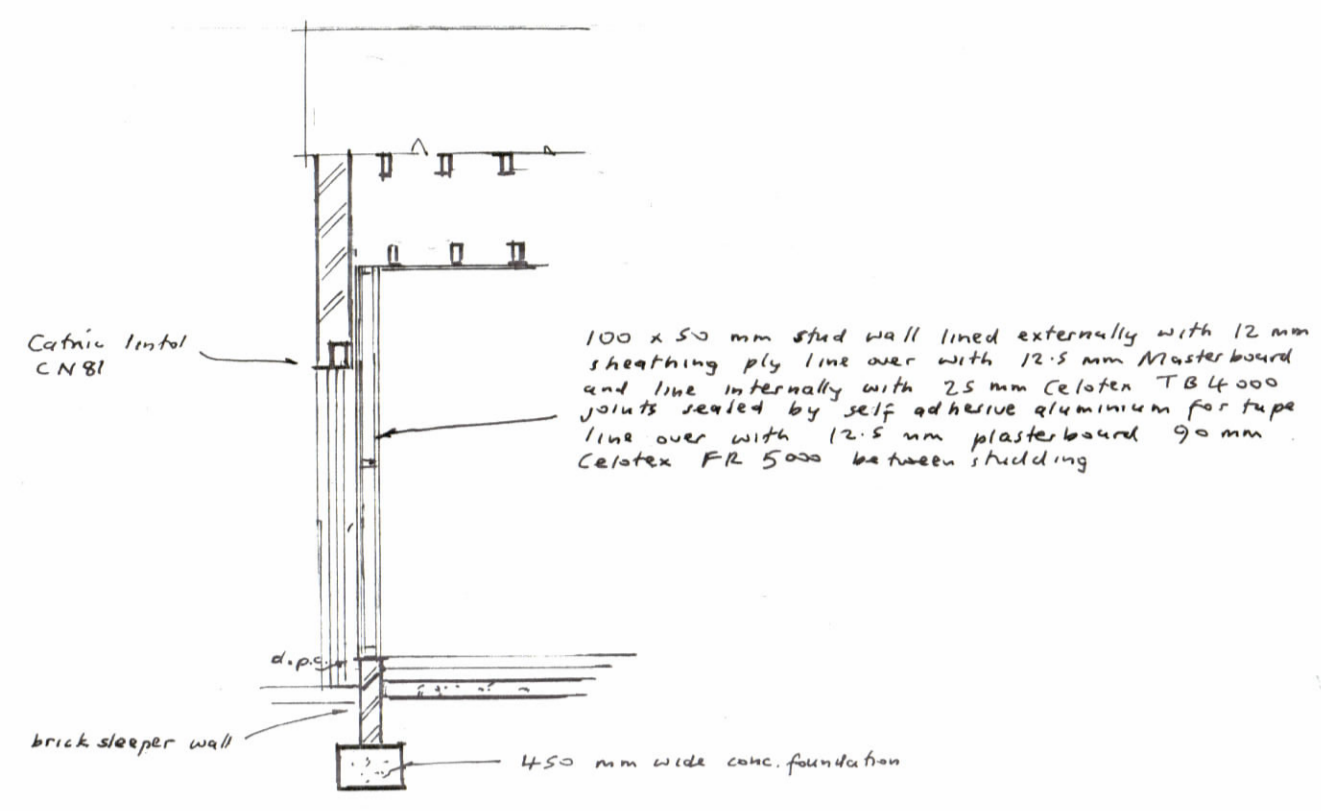 Catnic lintol
CN81
100 x 50 mm stud wall lined externally with 12 mm
sheathing ply line over with 12.5 mm Masterboard
and line internally with 25 mm Celotex TB4000
joints sealed by self adhesive aluminium for tape
line over with 12.5 mm plasterboard 90 mm
Celotex FR 5000 between studding
d.p.c.
brick sleeper wall
450 mm wide conc. foundation